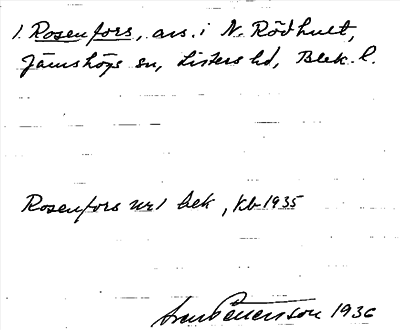 1. Rosenfors, avs. i N. Rödhult,
Jämshögs sn, Listers hd, Blek. l.
Rosenfors nr1 bek, kb 1935
Sven Petersson 1936